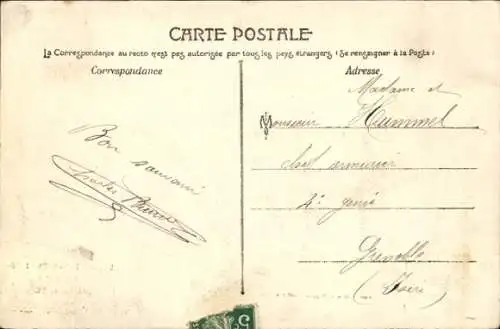 CARTE POSTALE
La Correspondance au recto n'est pas autorisée par tous les pays étrangers (Se renseigner à la Poste)
Correspondance
Adresse
Bon souvenir
Charles
Madame et
Monsieur Hummel
chef armurier
2e génie
Grenoble
(Isère)
5c